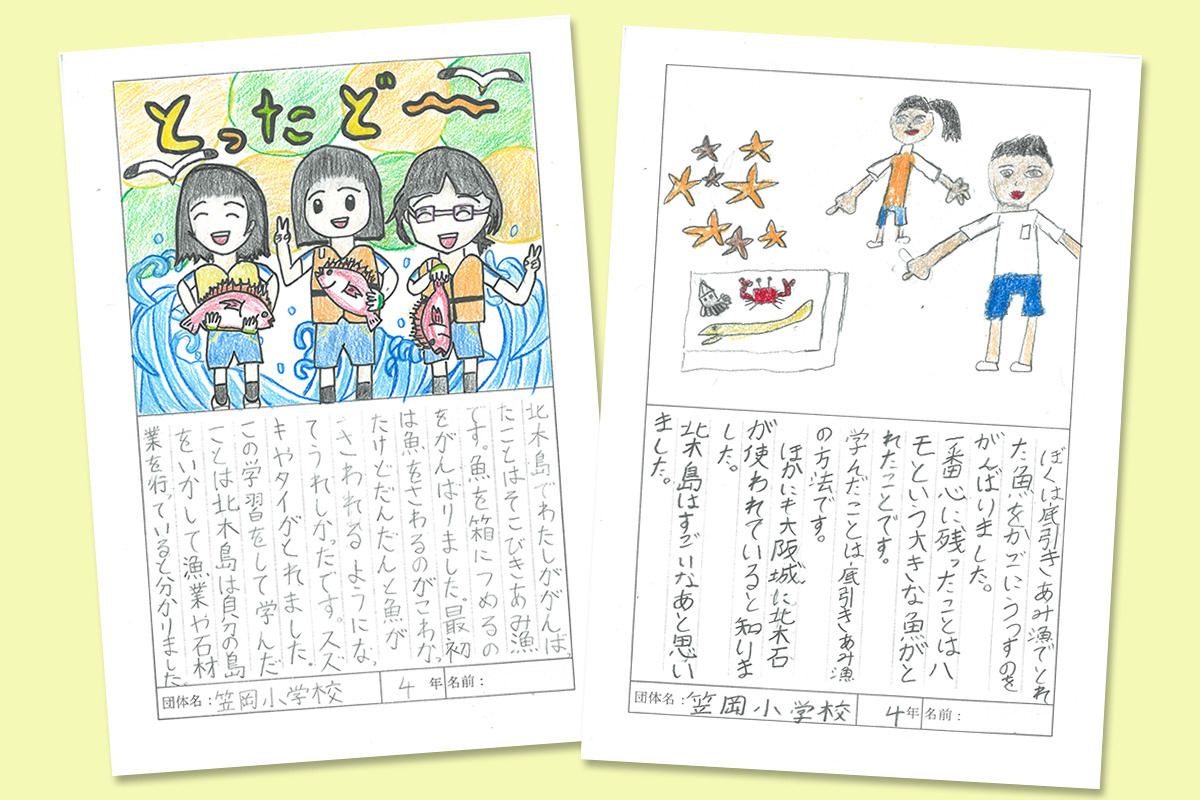 とったどー
北木島でわたしががんばっ
たことはそこびきあみ漁
です。魚を箱につめるの
をがんばりました。最初
は魚をさわるのがこわかっ
たけどだんだんと魚が
さわれるようになっ
てうれしかったです。スズ
キやタイがとれました。
この学習をして学んだ
ことは北木島は自分の島
をいかして漁業や石材
業を行っていると分かりました。
団体名:笠岡小学校
4年
名前:
ぼくは底引きあみ漁でとれ
た魚をかごにうつすのを
がんばりました。
一番心に残ったことはハ
モという大きな魚がと
れたことです。
学んだことは底引きあみ漁
の方法です。
ほかにも大阪城に北木石
が使われていると知りま
した。
北木島はすごいなあと思い
ました。
団体名:笠岡小学校
4年
名前: